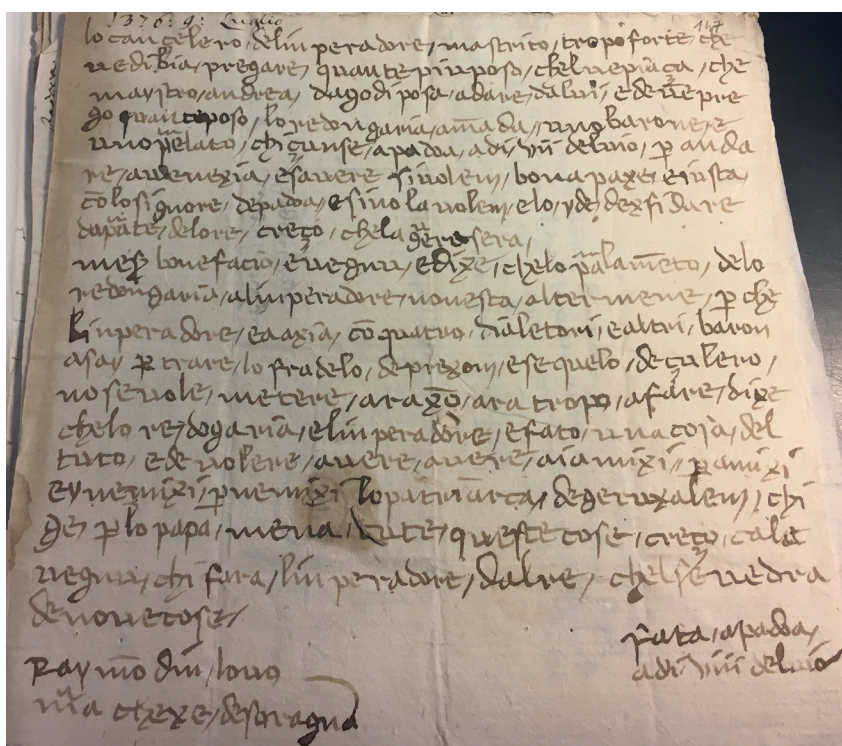 1376: 9: Luglio
147
lo cancelero, delinperadore, mascrito, tropo forte che
ve dibia, pregare, quante piu poso, chel ve piaça, che
maystro, andrea, dagodiposa, adare, dalui, e de
go quanteposo, lo redongaria, amada, uno baron ere
uno plato, chi çunse, a padoa, adi, vii de luio, p anda
re, a venexia, e savere sivolem, bona paxe, e iusta,
co lo signore, depadoa, e sino la volem, elo, de dexfidare
da pate, delore, creço, chela sera,
mes bonefacio, e vegnu, e dixe, che lo palameto, delo
redongaria, alinperadore, novesta, altermene, p che
linperadore, e axia, co quatro, dialetori, e altri, baron
asay p trare, lo fradelo, deprexom, e se quelo, de çulero,
no se vole, metere, a raxo, ara tropo, afare, dixe
che lo re, dogaria, e linperadore, e fato, una cosa, del
tuto, e de volere, avere, avere, ai amixi, p amixi
e y nemixi, p nemixi lo patriarca, degeruxalem, chi
ge, p lo papa, mena, tute, queste cose, creço, cala
vegnu, chi fara, linperadore, dalre, chelse vedra
de nove cose,
Fata, a padoa,
adi, viii de luio
Raymodin, lovo